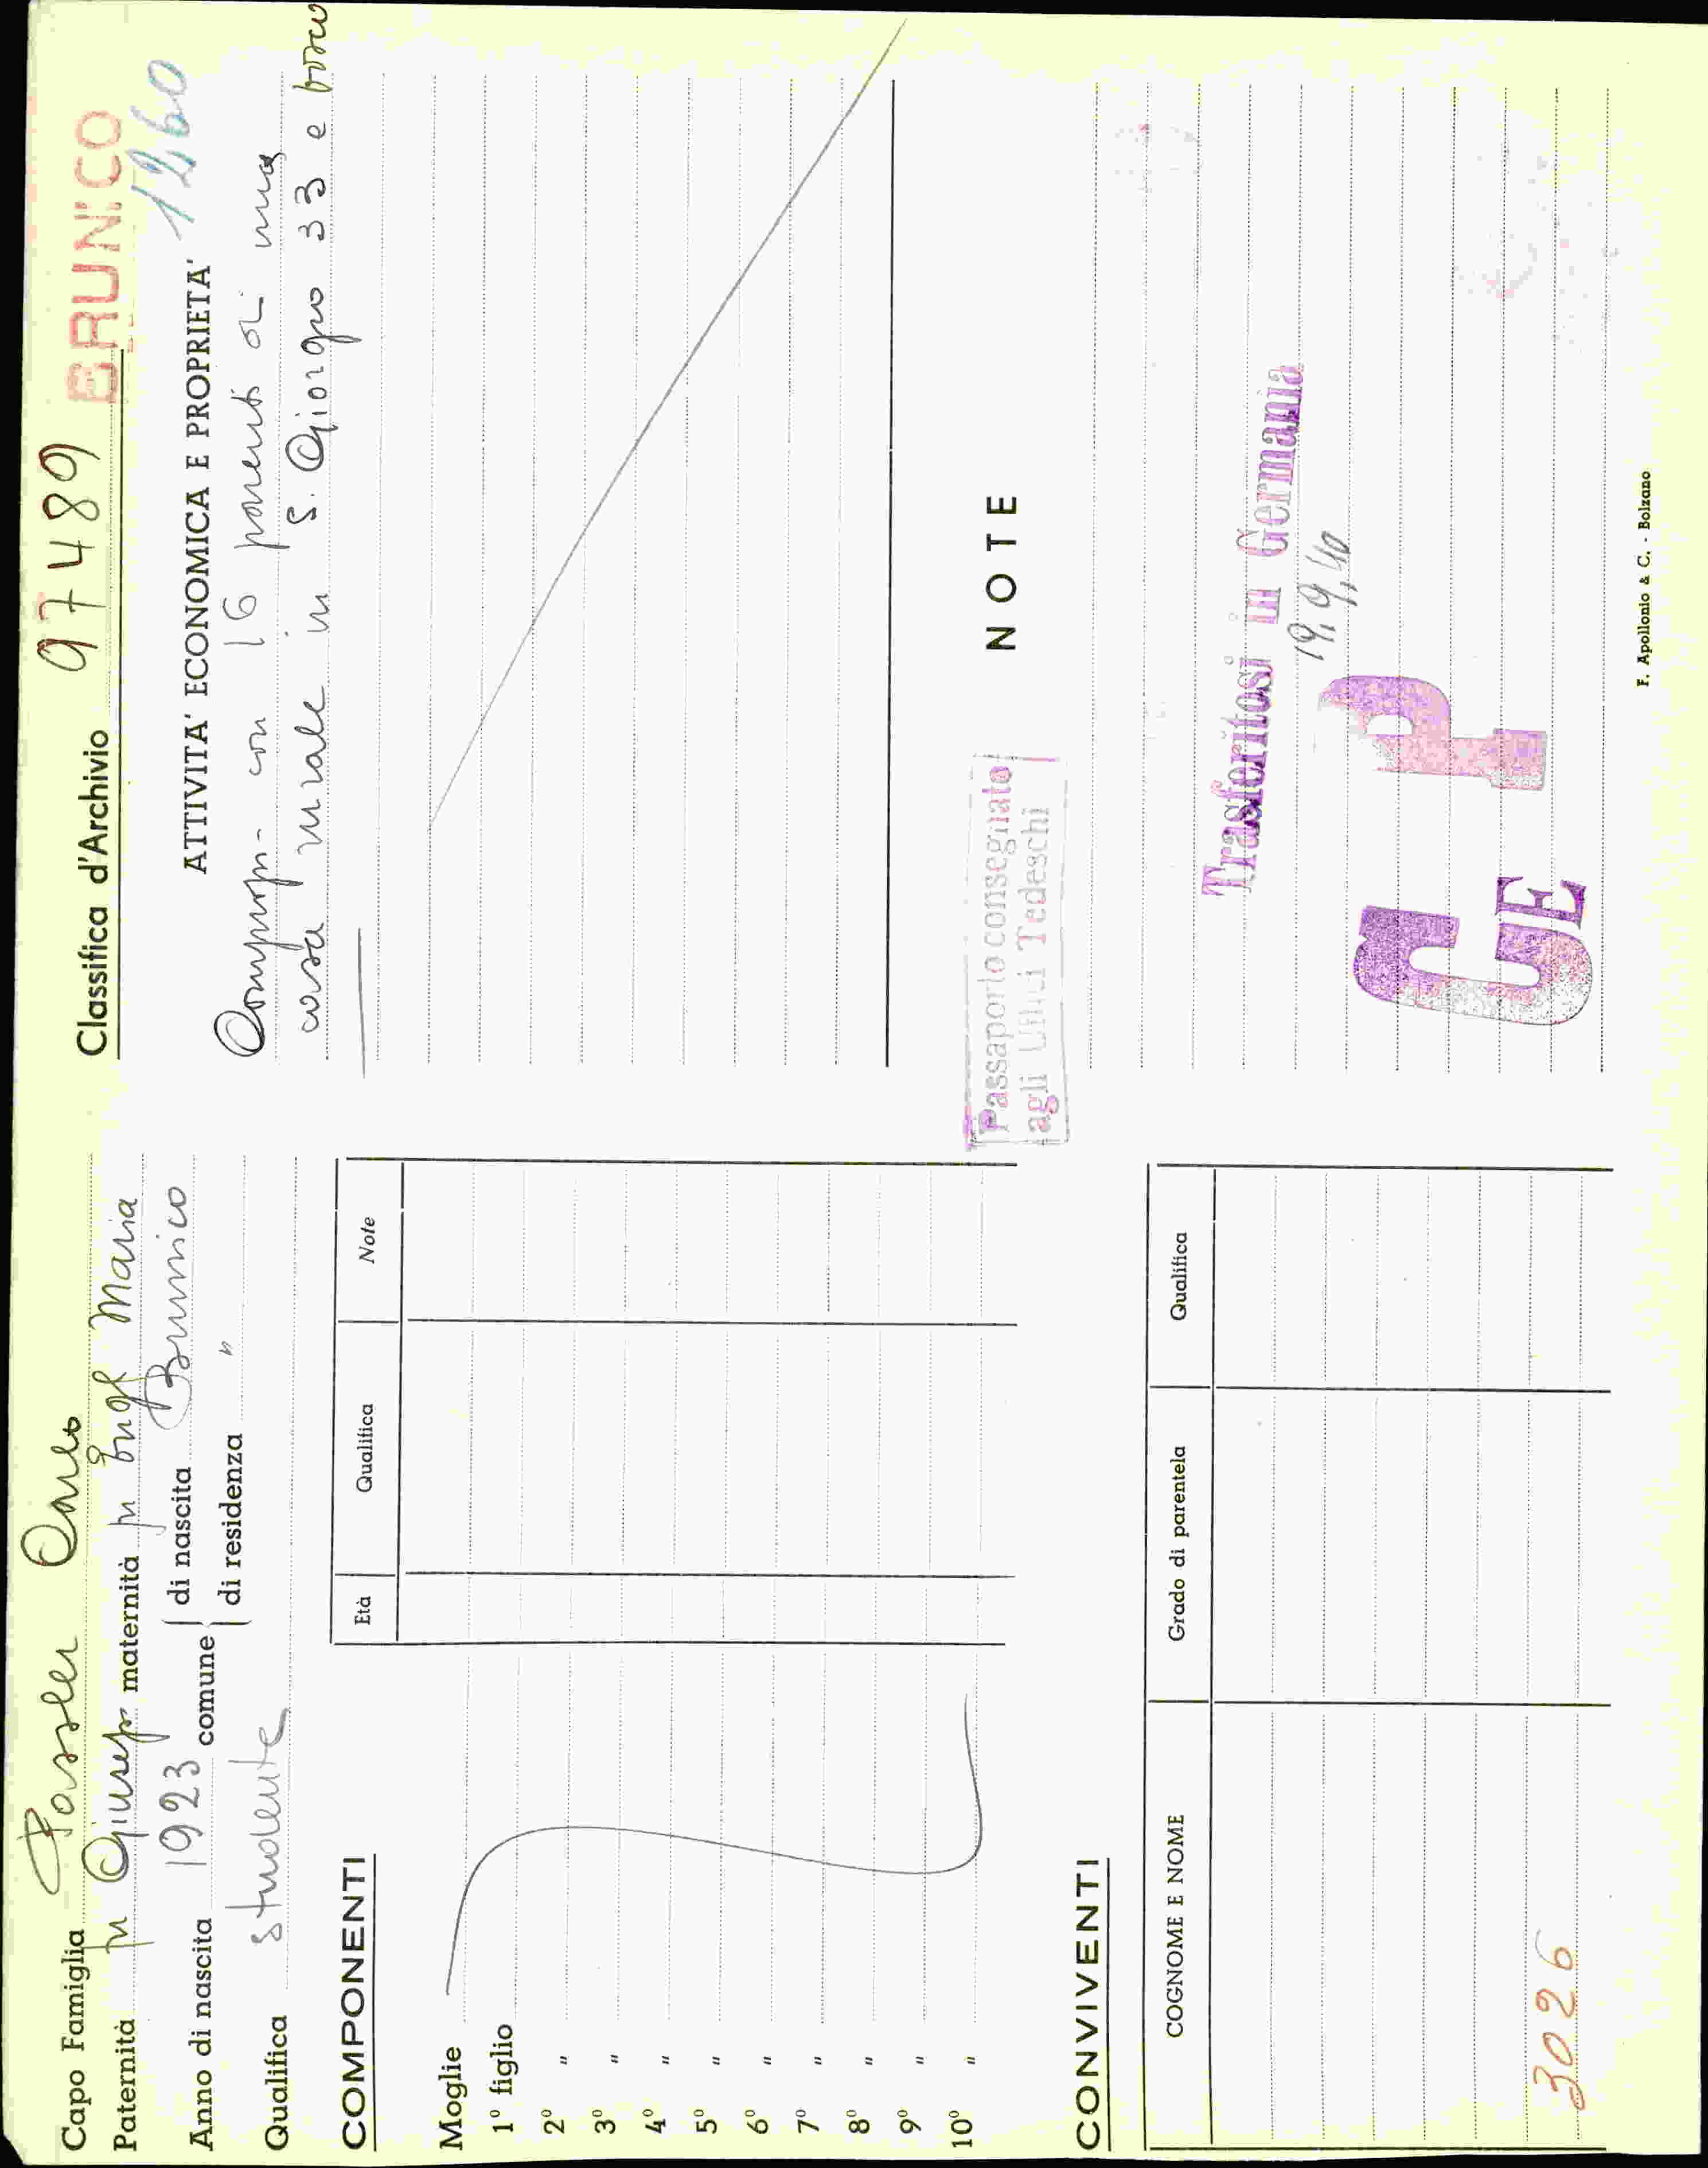 Capo Famiglia Passler Carlo
Paternità fu Giusep. maternità fu Engl Maria
Anno di nascita 1923 comune di nascita Brunico
di residenza "
Qualifica studente
COMPONENTI
Età Qualifica Note
Moglie
1º figlio
2º "
3º "
4º "
5º "
6º "
7º "
8º "
9º "
10º "
CONVIVENTI
COGNOME E NOME Grado di parentela Qualifica
3026
Classifica d'Archivio 97489 BRUNICO
1260
ATTIVITA' ECONOMICA E PROPRIETA'
Comprop- con 16 parenti di una
casa rurale in S. Giorgio 33 e bosco
NOTE
Passaporto consegnato
agli Uffici Tedeschi
Trasferitosi in Germania
19.9.40
C P
GE
F. Apollonio & C. - Bolzano